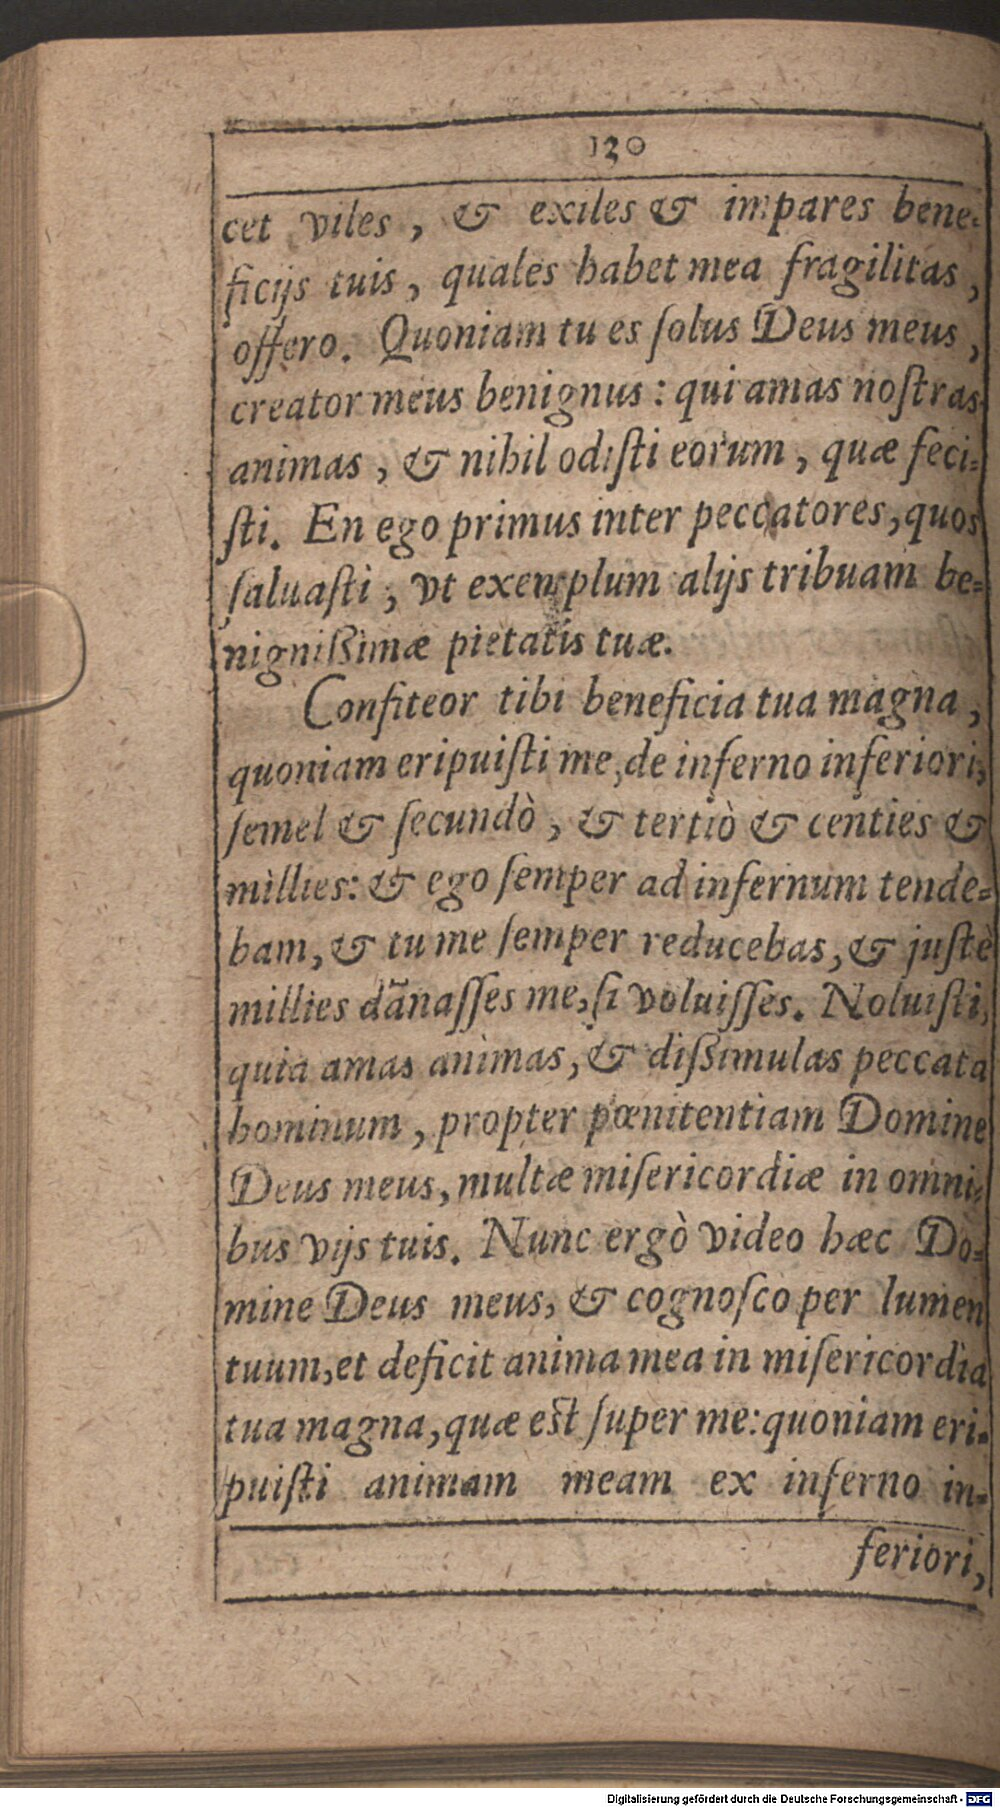 130
cet viles, & exiles & impares bene-
ficijs tuis, quales habet mea fragilitas,
offero. Quoniam tu es ſolus Deus meus,
creator meus benignus: qui amas noſtras
animas, & nihil odiſti eorum, quæ feci-
ſti. En ego primus inter peccatores, quos
ſaluaſti, vt exemplum alijs tribuam be-
nigniſſimæ pietatis tuæ.
Confiteor tibi beneficia tua magna,
quoniam eripuiſti me, de inferno inferiori,
ſemel & ſecundò, & tertiò & centies &
millies: & ego ſemper ad infernum tende-
bam, & tu me ſemper reducebas, & juſtè
millies dãnaſſes me, ſi voluiſſes. Noluiſti,
quia amas animas, & diſſimulas peccata
hominum, propter pœnitentiam Domine
Deus meus, multæ miſericordiæ in omni-
bus vijs tuis. Nunc ergò video hæc Do-
mine Deus meus, & cognoſco per lumen
tuum, et deficit anima mea in miſericordia
tua magna, quæ eſt ſuper me: quoniam eri-
puiſti animam meam ex inferno in-
feriori,
Digitalisierung gefördert durch die Deutsche Forschungsgemeinschaft - DFG